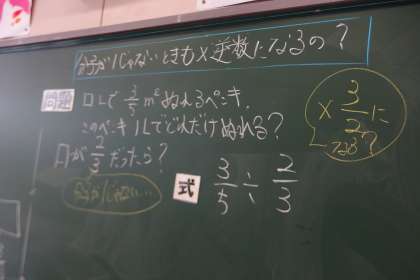 分子が1じゃないときも×逆数になるの？
問題
□Lで3/5m²ぬれるペンキ。
このペンキ1Lでどれだけぬれる？
□が2/3だったら？
分子が1じゃない…
×3/2に
なる？
式
3/5÷2/3